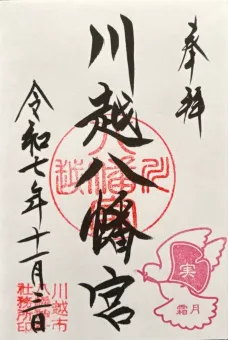 奉拝
川越八幡宮
令和七年十一月三日
実
霜月
川越市
八幡神社
社務所印